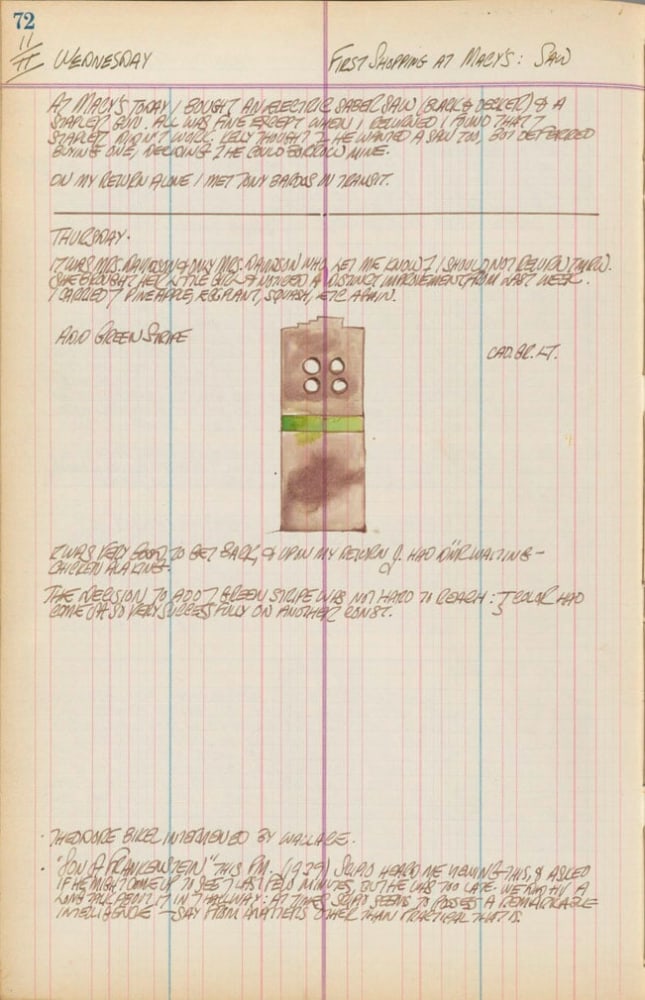 72
11
II WEDNESDAY FIRST SHOPPING AT MACY'S: SAW
AT MACY'S TODAY I BOUGHT AN ELECTRIC SABER SAW (BLACK & DECKER) & A
STAPLER GUN. ALL WAS FINE EXCEPT WHEN I RETURNED I FOUND THAT
STAPLER DIDN'T WORK. KELLY THOUGHT HE WANTED A SAW TOO, BUT DEFERRED
BUYING ONE, DECIDING HE COULD BORROW MINE.
ON MY RETURN ALONE I MET TONY BARDOS IN TRANSIT.
THURSDAY.
IT WAS MRS. DAVIDSON & ONLY MRS. DAVIDSON WHO LET ME KNOW I SHOULD NOT RETURN
SHE BROUGHT HER LITTLE & NOTICED A DISTINCT IMPROVEMENT FROM LAST WEEK.
I CARRIED PINEAPPLE, EGGPLANT, SQUASH, ETC. AGAIN.
ADD GREEN STRIPE
CAD. GR. LT.
IT WAS VERY GOOD TO GET BACK, & UPON MY RETURN J. HAD WAITING –
CHICKEN A LA KING.
THE DECISION TO ADD GREEN STRIPE WAS NOT HARD TO REACH: COLOR HAD
COME OFF SO VERY SUCCESSFULLY ON ANOTHER CONST.
· THEODORE BIKEL INTERVIEWED BY WALLACE.
· "SON OF FRANKENSTEIN" THIS PM. (1939) HEARD ME VIEWING THIS, & ASKED
IF HE MIGHT COME UP TO SEE LAST FEW MINUTES, BUT HE WAS TOO LATE. WE HAD A
LONG TALK ABOUT IT IN HALLWAY: AT TIMES SEEMS TO POSSESS A REMARKABLE
INTELLIGENCE – SAY FROM MATTERS OTHER THAN PRACTICAL THAT IS.